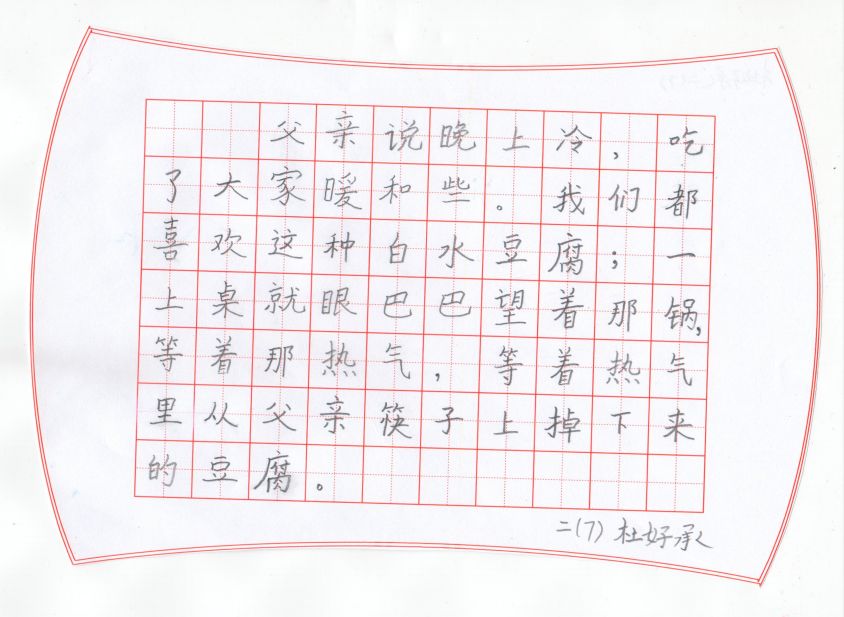 父亲说晚上冷，吃
了大家暖和些。我们都
喜欢这种白水豆腐；一
上桌就眼巴巴望着那锅，
等着那热气，等着热气
里从父亲筷子上掉下来
的豆腐。
二(7) 杜好承